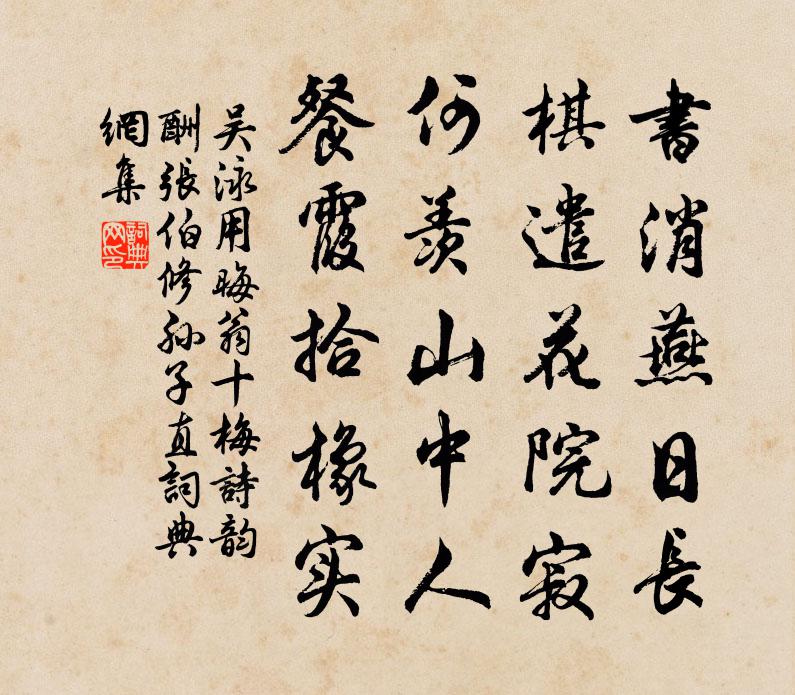 書消燕日長
棋遣花院寂
何羨山中人
餐霞拾橡实
吴泳用晦翁十梅詩韵
酬張伯修孙子直詞典
網集
詞典
网印